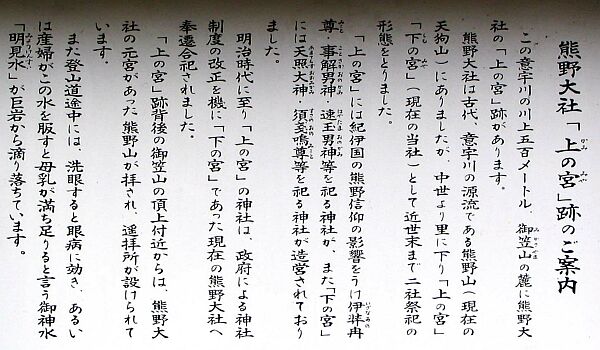 熊野大社「上の宮」跡のご案内
この意宇川の川上五百メートル、御笠山の麓に熊野大
社の「上の宮」跡があります。
熊野大社は古代、意宇川の源流である熊野山（現在の
天狗山）にありましたが、中世より里に下り「上の宮」
「下の宮」（現在の当社）として近世末まで二社祭祀の
形態をとりました。
「上の宮」には紀伊国の熊野信仰の影響をうけ伊弉冉
尊・事解男神・速玉男神等を祀る神社が、また「下の宮」
には天照大神・須戔嗚尊等を祀る神社が造営されており
ました。
明治時代に至り「上の宮」の神社は、政府による神社
制度の改正を機に「下の宮」であった現在の熊野大社へ
奉遷合祀されました。
「上の宮」跡背後の御笠山の頂上付近からは、熊野大
社の元宮があった熊野山が拝され、遥拝所が設けられて
います。
また登山道途中には、洗眼すると眼病に効き、あるい
は産婦がこの水を服すと母乳が満ち足りると言う御神水
「明見水」が巨岩から滴り落ちています。